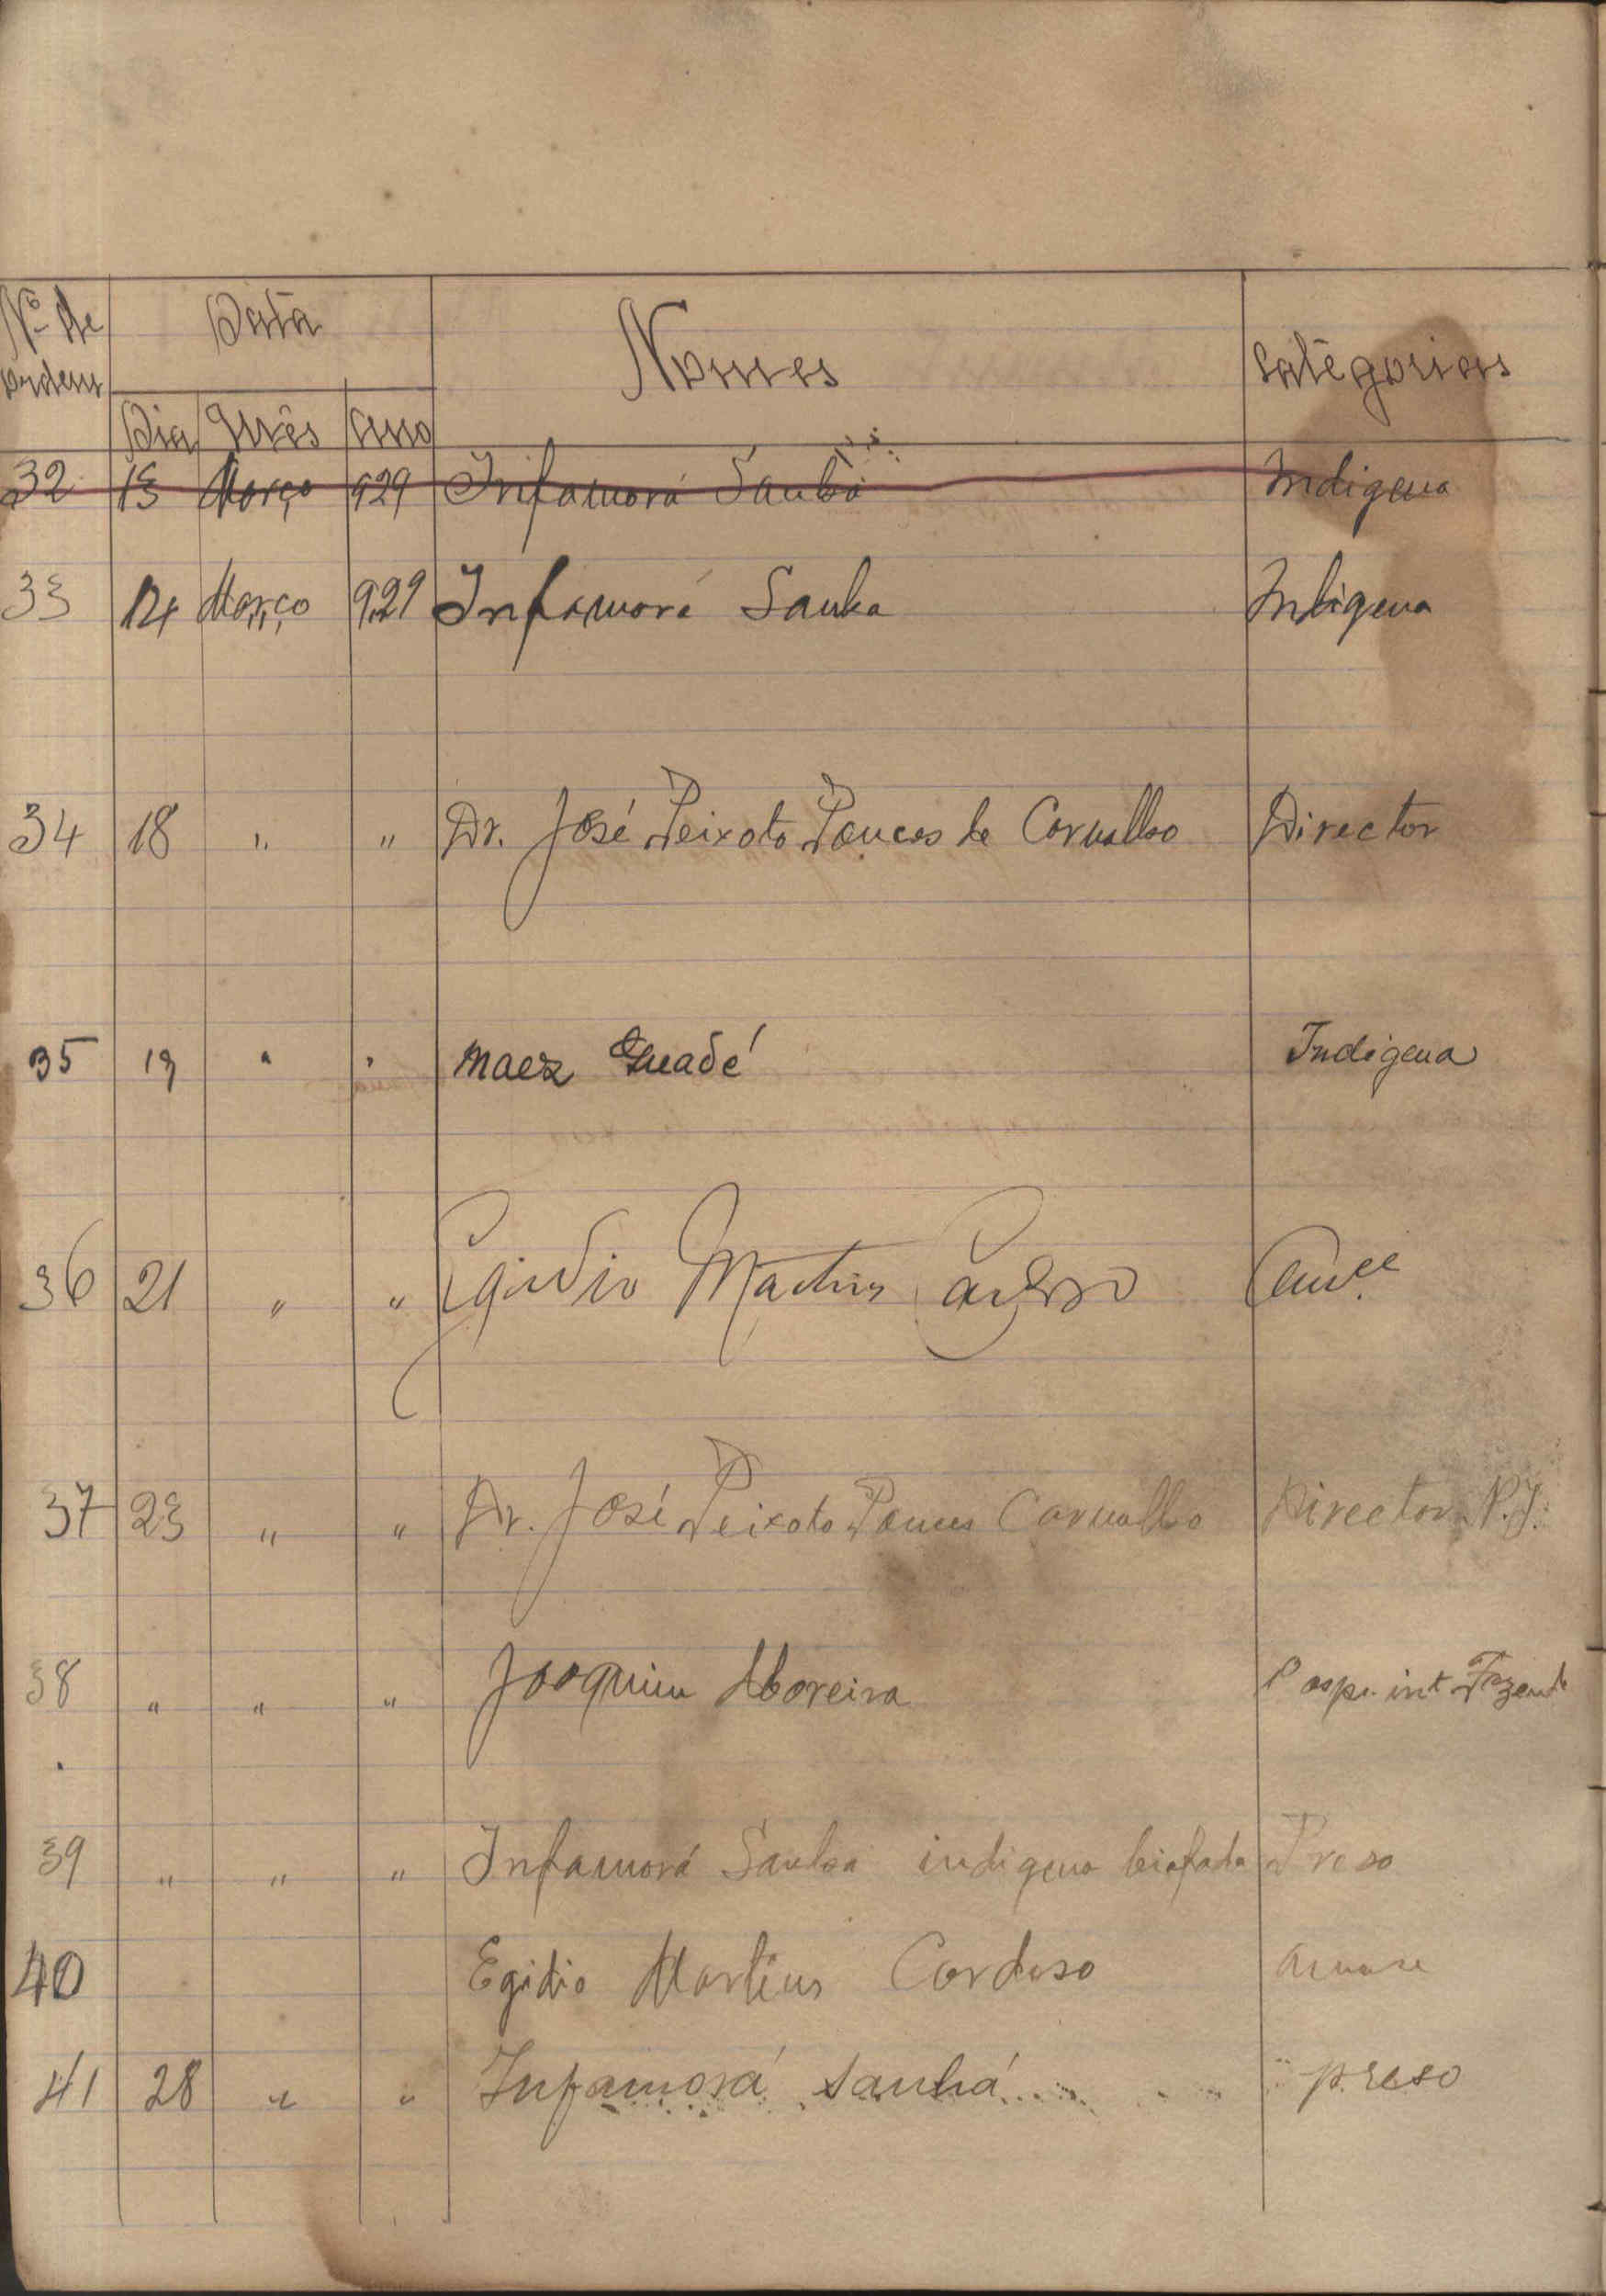 Nº de ordem Data Nomes Categorias
Dia Mês Ano
32 13 Março 929 Infamorá Sanhá Indigena
33 14 Março 929 Infamorá Sanha Indigena
34 18 " " Dr. José Peixoto Ponces de Carvalho Director
35 19 " " Maez Guadé Indigena
36 21 " " Egidio Martins Cardoso
37 23 " " Dr. José Peixoto Ponces Carvalho Director P.J.
38 " " " Joaquim Moreira int Fazenda
39 " " " Infamorá Sanha indigena biafada Preso
40 Egidio Martins Cardoso
41 28 " " Infamorá Sanhá preso